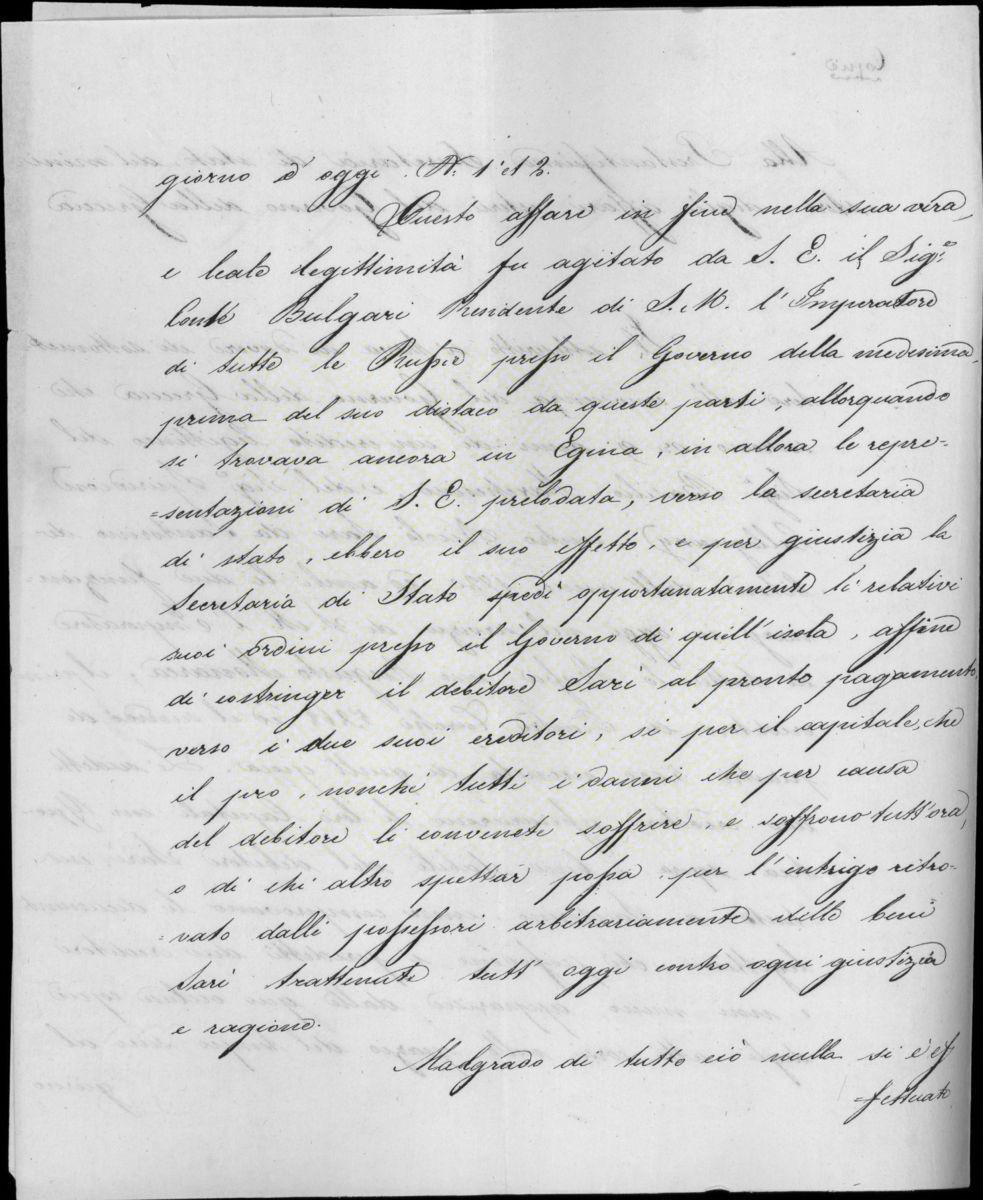 giorno d'oggi. N: 1 et 2.
Questo affare in fine nella sua vera,
e leale legittimità fu agitato da S. E. il Sig:º
Conte Bulgari Residente di S. M. l'Imperatore
di tutte le Russie presso il Governo della medesima,
prima del suo distaco da queste parti, allorquando
si trovava ancora in Egina, in allora le repre-
=sentazioni di S. E. prelodata, verso la secretaria
di stato, ebbero il suo effetto, e per giustizia la
Secretaria di Stato spedì opportunatamente li relativi
suoi ordini presso il Governo di quell'isola, affine
di costringer il debitore Sari al pronto pagamento
verso i due suoi creditori, si per il capitale, che
il pro, nonchè tutti i danni che per causa
del debitore li convenete soffrire, e soffrono tutt'ora,
o di chi altro spettar possa per l'intrigo ritro-
=vato dalli possessori arbitrariamente delle beni
Sari trattenute tutt'oggi contro ogni giustizia
e ragione.
Malgrado di tutto ciò nulla si è ef
=fettuato